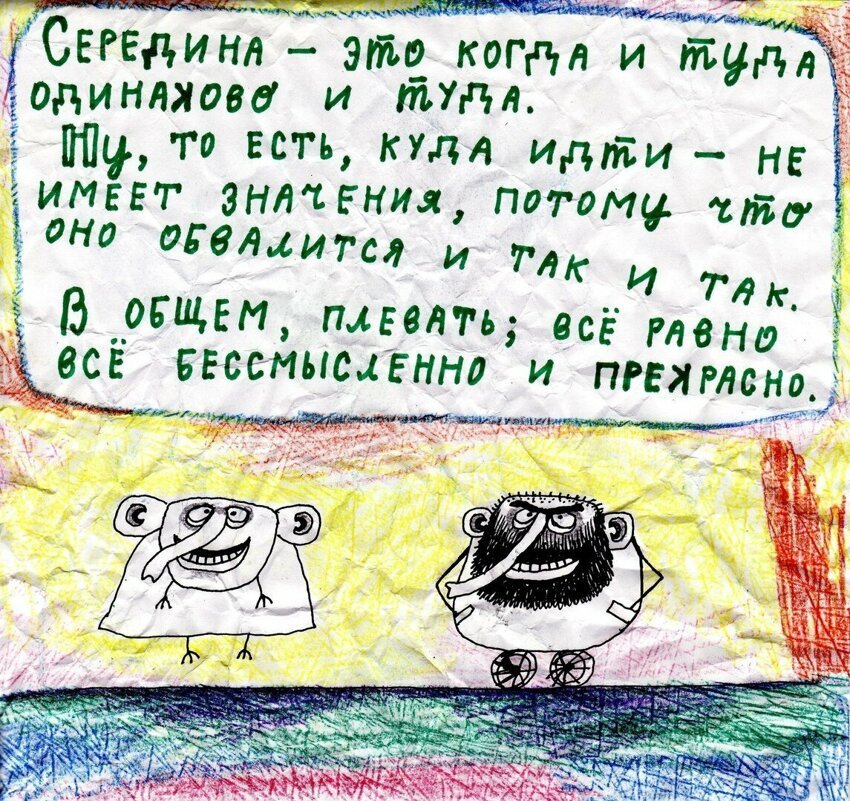 Середина — это когда и туда
одинаково и туда.
Ну, то есть, куда идти — не
имеет значения, потому что
оно обвалится и так и так.
В общем, плевать; всё равно
всё бессмысленно и прекрасно.